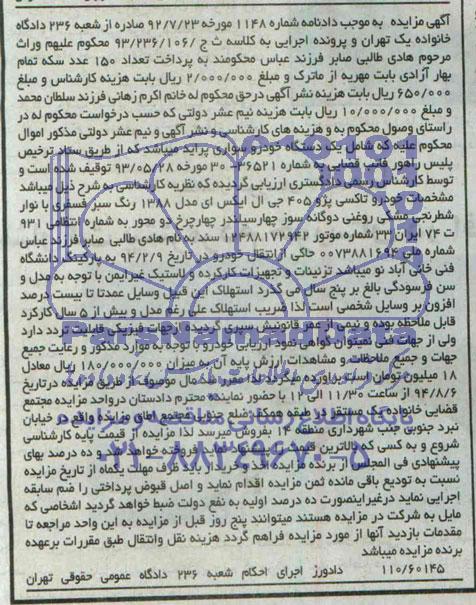 آگهی مزایده به موجب دادنامه شماره ۱۱۴۸ مورخه ۹۲/۷/۲۳ صادره از شعبه ۲۳۶ دادگاه
خانواده یک تهران و پرونده اجرایی به کلاسه ث ج /۹۳/۲۳۶/۱۰۶ محکوم علیهم وراث
مرحوم هادی طالبی صابر فرزند عباس محکومند به پرداخت تعداد ۱۵۰ عدد سکه تمام
بهار آزادی بابت مهریه از ماترک و مبلغ ۲/۰۰۰/۰۰۰ ریال بابت هزینه کارشناس و مبلغ
۶۵۰/۰۰۰ ریال بابت هزینه نشر آگهی در حق محکوم له خانم اکرم زهانی فرزند سلطان محمد
و مبلغ ۱۰/۰۰۰/۰۰۰ ریال بابت هزینه نیم عشر دولتی که حسب درخواست محکوم له در
راستای وصول محکوم به و هزینه های کارشناسی و نشر آگهی و نیم عشر دولتی مذکور اموال
محکوم علیه که شامل یک دستگاه خودرو سواری پراید میباشد که از طریق ستاد ترخیص
پلیس راهور فاتب قضایی به شماره ۳۶۵۲۱-۳۰ مورخه ۹۳/۰۵/۲۸ توقیف شده است و
توسط کارشناس رسمی دادگستری ارزیابی گردیده که نظریه کارشناسی به شرح ذیل میباشد
مشخصات خودرو تاکسی پژو ۴۰۵ جی ال ایکس ای مدل ۱۳۸۸ رنگ سبز فسفری با نوار
شطرنجی مشکی روغنی دوگانه سوز چهارسیلندر چهارچرخ دو محور به شماره انتظامی ۹۳۱
ت ۷۴ ایران ۳۳ شماره موتور ۱۲۴۸۸۱۷۲۹۴۲ سند به نام هادی طالبی صابر فرزند عباس
شماره ملی ۰۰۷۳۸۸۱۶۹۴ حاکی از انتقال خودرو در تاریخ ۹۴/۲/۹ به پارکینگ دانشگاه
فنی خانی آباد نو میباشد تزئینات و تجهیزات کارکرده و لاستیک غیرایمن با توجه به مدل و
سن فرسودگی بالغ بر پنج سال می گیرد استهلاک این قبیل وسایل عمدتا تا بیست درصد
افزون بر وسایل شخصی است لذا ضریب استهلاک علی رغم مدل و بیش از ۵ سال کارکرد
قابل ملاحظه بوده و نیمی از عمر قانونیش سپری گردیده از جهات فیزیکی قابلیت تردد دارد
ولی از جهات فنی نمیتوان گواهی نمود ارزیابی خودرو با توجه به موارد مذکور و رعایت جمیع
جهات و جمیع ملاحظات و مشاهدات ارزش پایه آن به میزان ۱۸۰/۰۰۰/۰۰۰ ریال معادل
۱۸ میلیون تومان است برآورده میگردد لذا مقرر شد مال موصوف از طریق مزایده در تاریخ
۹۴/۸/۶ از ساعت ۱۱/۳۰ الی ۱۲ با حضور نماینده محترم دادستان در واحد مزایده مجتمع
قضایی خانواده یک مستقر در طبقه همکف ضلع جنوبی مجتمع اتاق مزایده واقع در خیابان
نبرد جنوبی جنب شهرداری منطقه ۱۴ بفروش میرسد لذا مزایده از قیمت پایه کارشناسی
شروع و به کسی که بالاترین قیمت را پیشنهاد نماید فروخته خواهد شد و ده درصد بهای
پیشنهادی فی المجلس از برنده مزایده اخذ و خریدار باید ظرف مهلت یکماه از تاریخ مزایده
نسبت به تودیع باقی مانده ثمن مزایده اقدام نماید و اصل قبوض پرداختی را ضم سابقه
اجرایی نماید درغیراینصورت ده درصد اولیه به نفع دولت ضبط خواهد گردید اشخاصی که
مایل به شرکت در مزایده هستند میتوانند پنج روز قبل از مزایده به این واحد مراجعه تا
مقدمات بازدید آنها از مورد مزایده فراهم گردد هزینه نقل وانتقال طبق مقررات برعهده
برنده مزایده میباشد
۱۱۰/۶۰۱۴۵ دادورز اجرای احکام شعبه ۲۳۶ دادگاه عمومی حقوقی تهران